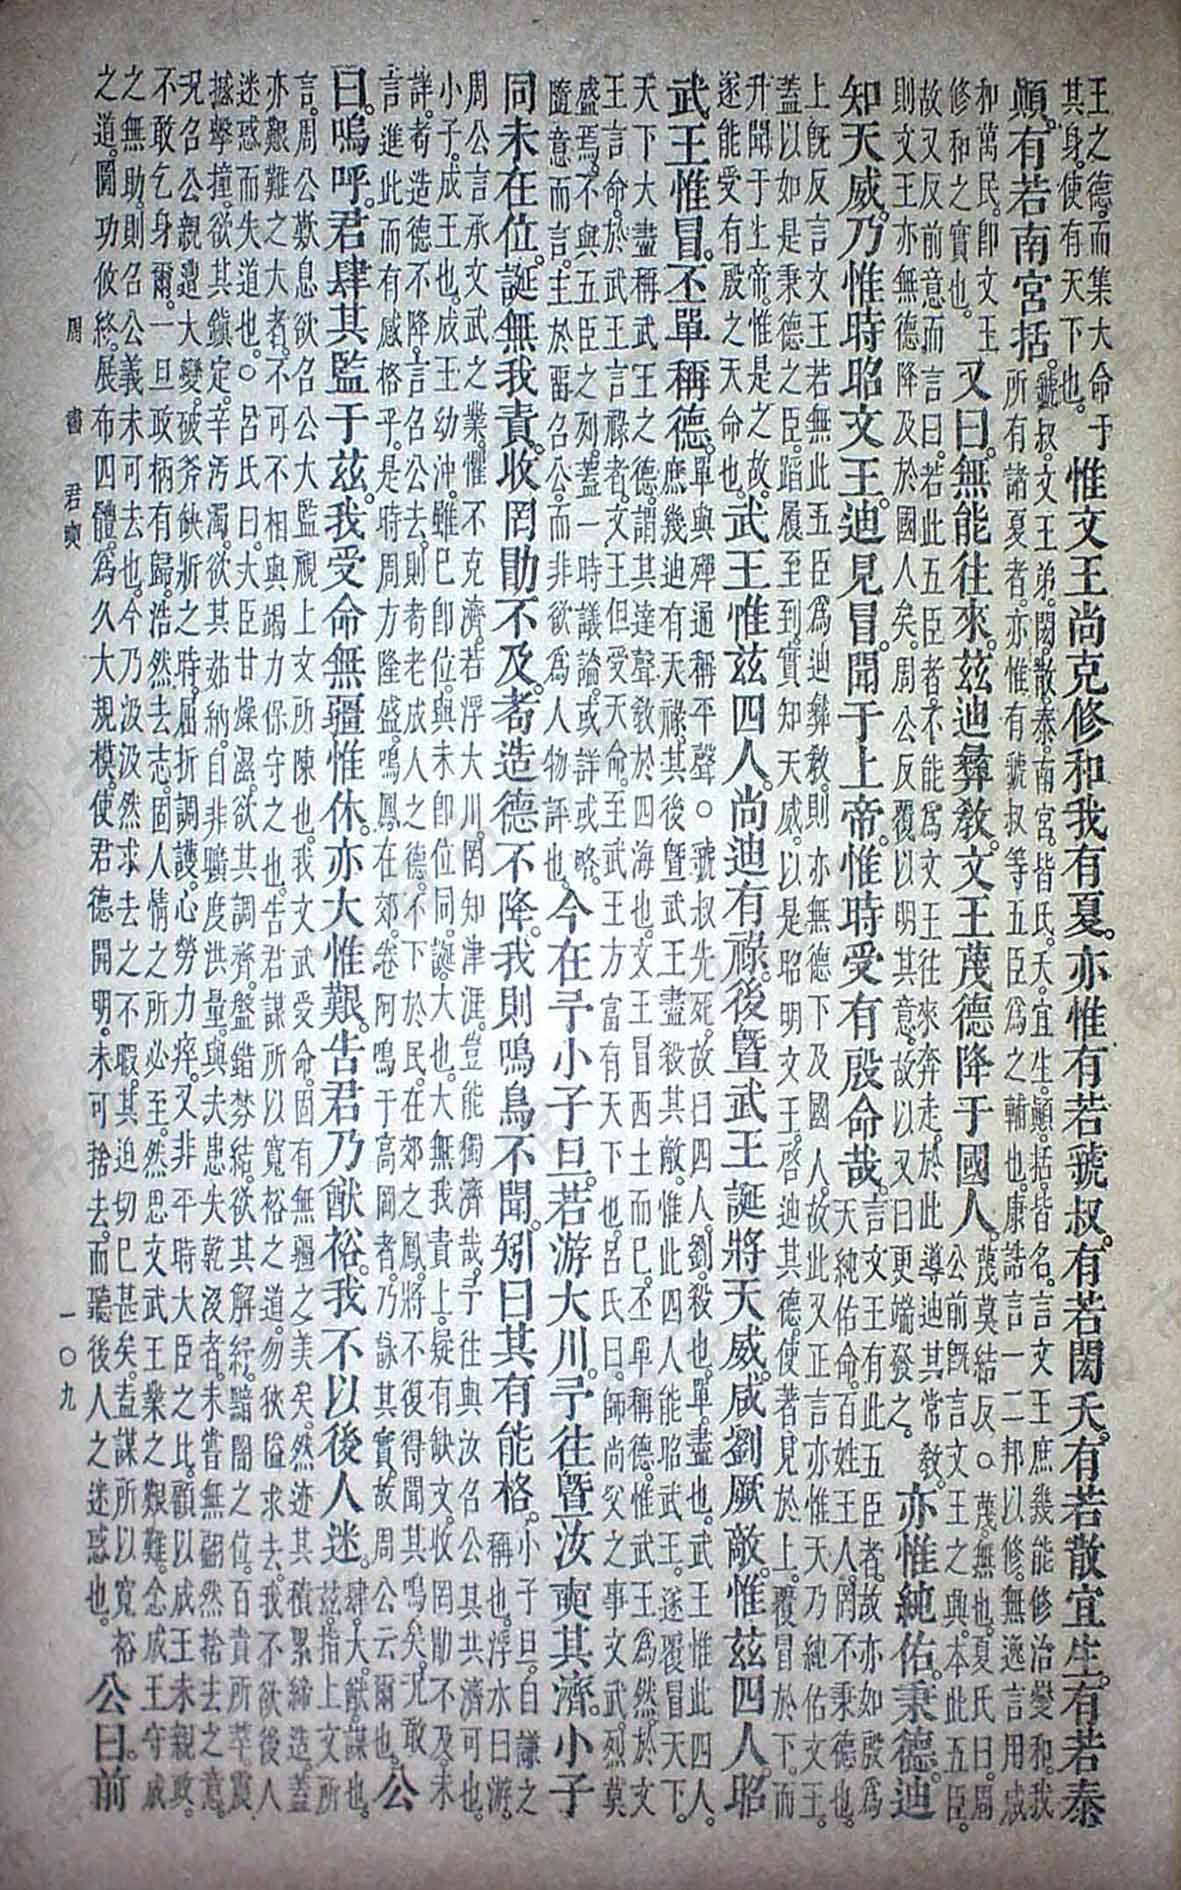 王之德。而集大命于
其身。使有天下也。
惟文王尚克修和我有夏。亦惟有若虢叔。有若閎夭。有若散宜生。有若泰
顚。有若南宮括。
虢叔。文王弟。閎。散。泰。南宮。皆氏。夭。宜生。顚。括。皆名。言文王庶幾能修治燮和。我
所有諸夏者。亦惟有虢叔等五臣爲之輔也。康誥言一二邦以修。無逸言用咸
和萬民。卽文王
修和之實也。
又曰。無能往來。茲迪彝敎。文王蔑德降于國人。
蔑。莫結反。○蔑。無也。夏氏曰。周
公前旣言文王之興。本此五臣。
故又反前意而言曰。若此五臣者。不能爲文王往來奔走。於此導迪其常敎。
則文王亦無德降及於國人矣。周公反覆以明其意。故以又曰更端發之。
亦惟純佑。秉德迪
知天威。乃惟時昭文王。迪見冒。聞于上帝。惟時受有殷命哉。
言文王有此五臣者。故亦如殷爲
天純佑命。百姓王人。罔不秉德也。
上旣反言文王若無此五臣爲迪彝敎。則亦無德下及國人。故此又正言亦惟天乃純佑文王。
蓋以如是秉德之臣。蹈履至到。實知天威。以是昭明文王。啓迪其德。使著見於上。覆冒於下。而
升聞于上帝。惟是之故。
遂能受有殷之天命也。
武王惟茲四人。尚迪有祿。後曁武王誕將天威。咸劉厥敵。惟茲四人。昭
武王惟冒。丕單稱德。
單與殫通。稱平聲。○虢叔先死。故曰四人。劉。殺也。單。盡也。武王惟此四人。
庶幾迪有天祿。其後曁武王盡殺其敵。惟此四人能昭武王。遂覆冒天下。
天下大盡稱武王之德。謂其達聲敎於四海也。文王冒西土而已。丕單稱德。惟武王爲然。於文
王言命。於武王言祿者。文王但受天命。至武王方富有天下也。呂氏曰。師尚父之事文武。烈莫
盛焉。不與五臣之列。蓋一時議論。或詳或略。
隨意而言。主於留召公。而非欲爲人物評也。
今在予小子旦。若游大川。予往曁汝奭其濟。小子
同未在位。誕無我責。收罔勖不及。耇造德不降。我則鳴鳥不聞。矧曰其有能格。
小子旦。自謙之
稱也。浮水曰游。
周公言承文武之業。懼不克濟。若浮大川。罔知津涯。豈能獨濟哉。予往與汝召公其共濟可也。
小子。成王也。成王幼沖。雖已卽位。與未卽位同。誕。大也。大無我責上。疑有缺文。收罔勖不及。未
詳。耇造德不降。言召公去。則耇老成人之德。不下於民。在郊之鳳。將不復得聞其鳴矣。況敢
言進此而有感格乎。是時周方隆盛。鳴鳳在郊。卷阿鳴于高岡者。乃詠其實。故周公云爾也。
公
曰。嗚呼。君。肆其監于茲。我受命無疆惟休。亦大惟艱。告君乃猷裕。我不以後人迷。
肆。大。猷。謀也。
茲。指上文所
言。周公歎息欲召公大監視上文所陳也。我文武受命。固有無疆之美矣。然迹其積累締造。蓋
亦艱難之大者。不可不相與竭力保守之也。告君謀所以寬裕之道。勿狹隘求去。我不欲後人
迷惑而失道也。○呂氏曰。大臣甘燥濕。欲其調齊。盤錯棼結。欲其解紓。黯闇之位。百責所萃。震
撼擊撞。欲其鎮定。辛汚濁。欲其茹納。自非曠度洪量。與夫患失乾沒者。未嘗無翩然捨去之意。
況召公親遭大變。破斧缺斨之時。屈折調護。心勞力瘁。又非平時大臣之比。顧以成王未親政。
不敢乞身爾。一旦政柄有歸。浩然去志。固人情之所必至。然思文武王業之艱難。念成王守成
之無助。則召公義未可去也。今乃汲汲然求去之不暇。其迫切已甚矣。盍謀所以寬裕
之道。圖功攸終。展布四體。爲久大規模。使君德開明。未可捨去。而聽後人之迷惑也。
公曰。前
周書 君奭 一〇九